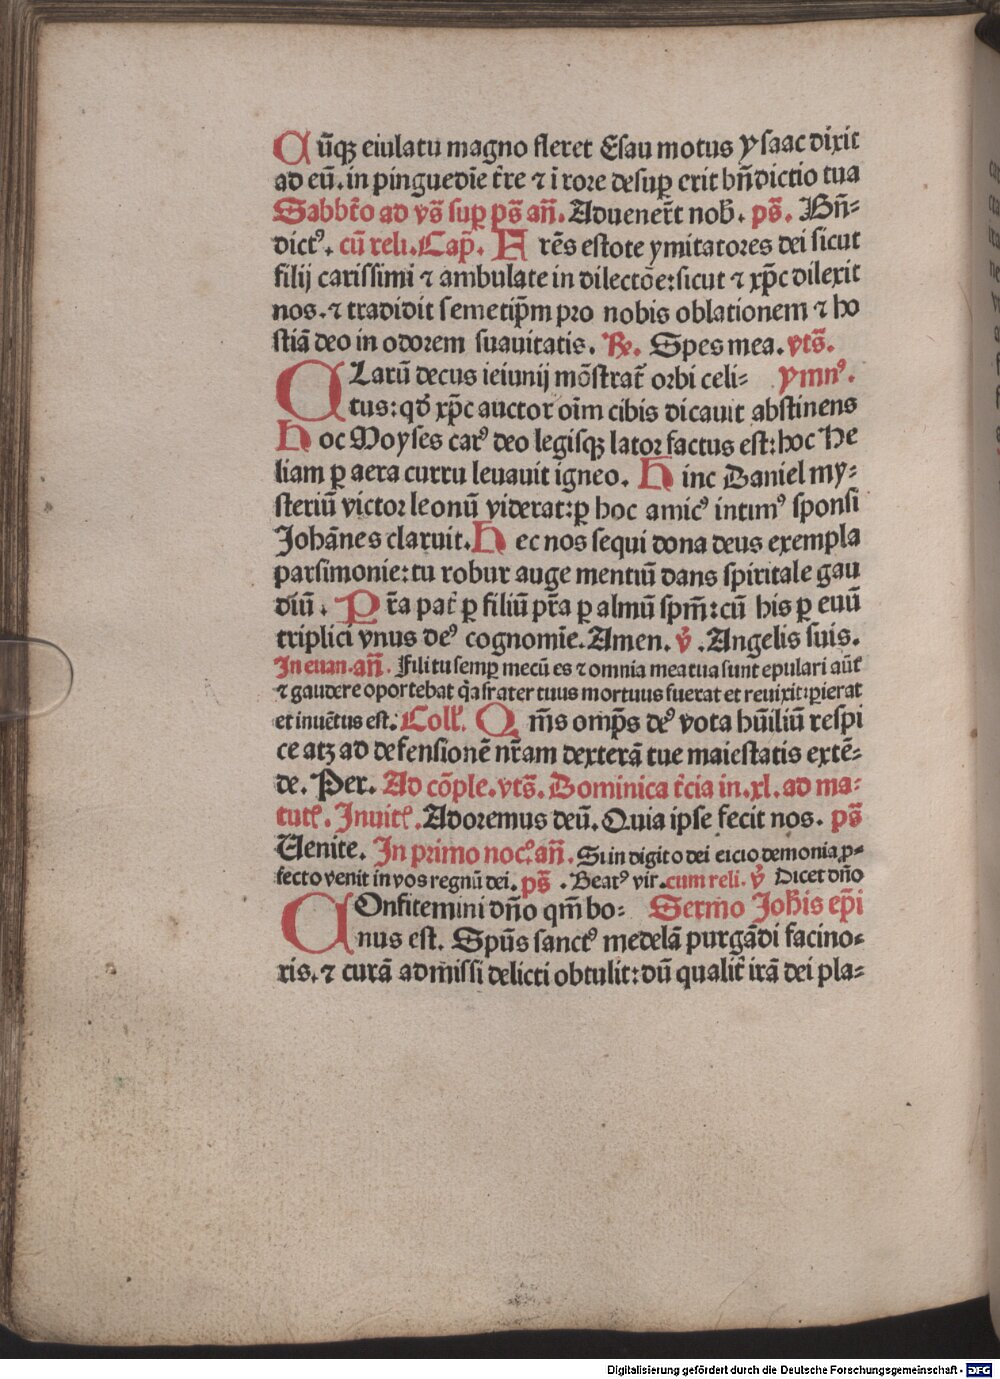 Cūqꝫ eiulatu magno fleret Esau motus ysaac dixit
ad eū. in pinguedīe t̄re ⁊ ī rore desuꝑ erit bn̄dictio tua
Sabbt̄o ad vs̄ suꝑ ps̄ an̄. Aduener̄t nob̄. ps̄. Bn̄⸗
dictꝰ. cū reli. Cap̄. E rēs estote ymitatores dei sicut
filij carissimi ⁊ ambulate in dilectōe: sicut ⁊ xp̄c dilexit
nos. ⁊ tradidit semetip̄m pro nobis oblationem ⁊ ho
stiā deo in odorem suauitatis. ℞. Spes mea. vts̄.
CLarū decus ieiunij mōstrat̄ orbi celi⸗ ymnꝰ.
tus: qd̄ xp̄c auctor oīm cibis dicauit abstinens
Hoc Moyses carꝰ deo legisqꝫ lator factus est: hoc He
liam ꝑ aera curru leuauit igneo. Hinc Daniel my⸗
steriū victor leonū viderat: ꝑ hoc amicꝰ intimꝰ sponsi
Johānes claruit. Hec nos sequi dona deus exempla
parsimonie: tu robur auge mentiū dans spiritale gau
diū. Pr̄a pat̄ ꝑ filiū pr̄a ꝑ almū spm̄: cū his ꝑ euū
triplici vnus deꝰ cognomīe. Amen. ℣. Angelis suis.
In euan. an̄. Fili tu semꝑ mecū es ⁊ omnia mea tua sunt epulari aūt
⁊ gaudere oportebat q̄a frater tuus mortuus fuerat et reuixit: pierat
et inuētus est. Coll̄. Qm̄s omp̄s deꝰ vota hūiliū respi
ce atꝫ ad defensionē nr̄am dexterā tue maiestatis extē⸗
de. Per. Ad cōple. vts̄. Dominica t̄cia in .xl. ad ma⸗
tut̄. Inuit̄. Adoremus deū. Quia ipse fecit nos. ps̄
Uenite. In primo noc̄. an̄. Si in digito dei eicio demonia ꝓ⸗
fecto venit in vos regnū dei. ps̄. Beatꝰ vir. cum reli. ℣ Dicet dn̄o
COnfitemini dn̄o qm̄ bo⸗ Sermo Joh̄is ep̄i
nus est. Spūs sanctꝰ medelā purgādi facino⸗
ris. ⁊ curā admissi delicti obtulit: dū qualit̄ irā dei pla⸗
Digitalisierung gefördert durch die Deutsche Forschungsgemeinschaft - DFG